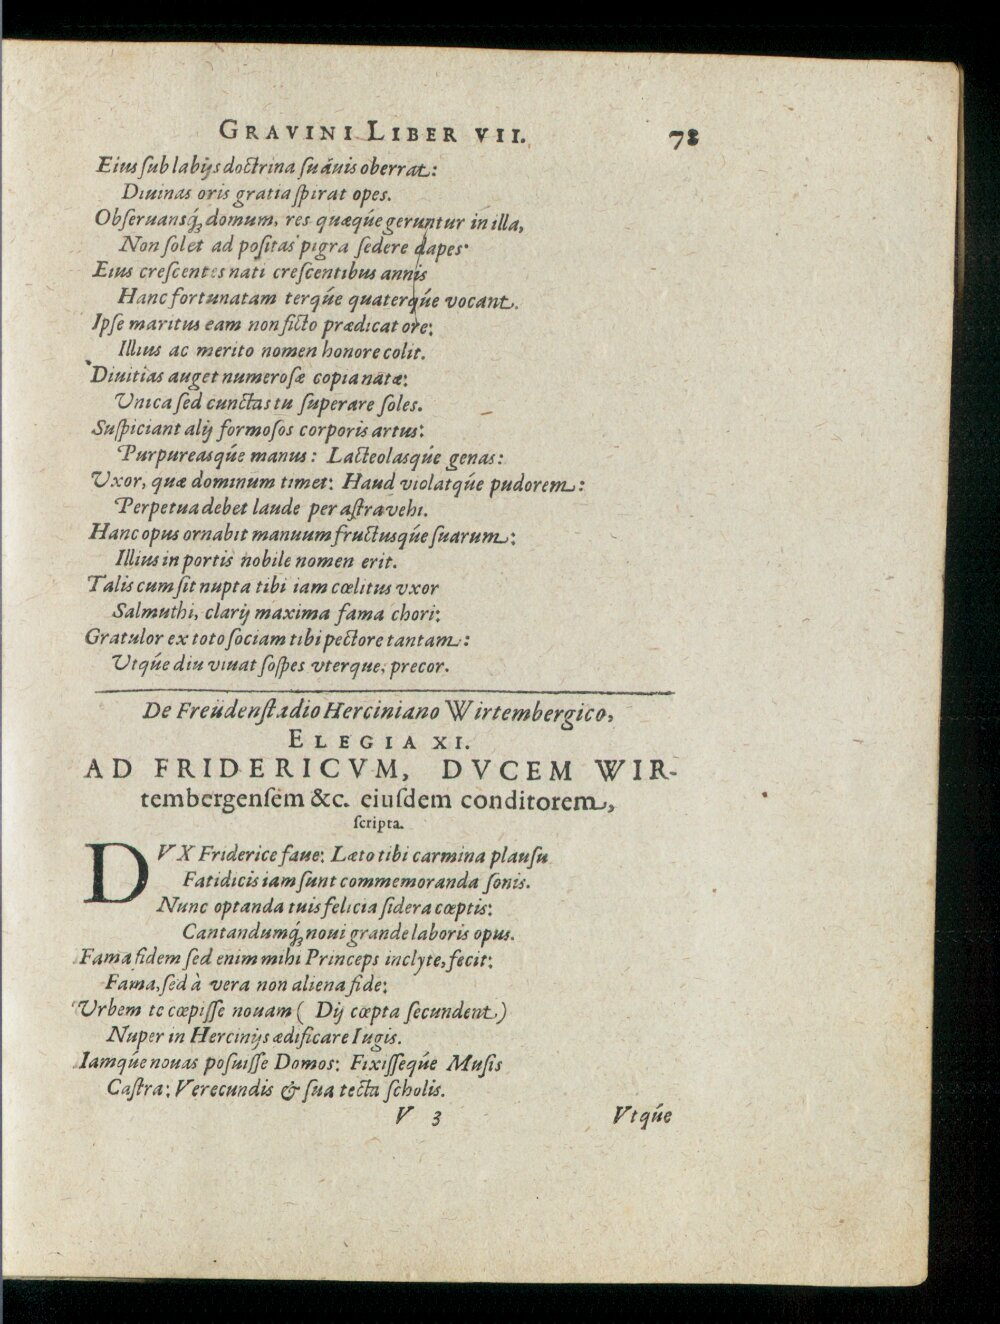 GRAVINI LIBER VII. 78
Eius ſub labijs doctrina ſuáuis oberrat:
Diuinas oris gratia ſpirat opes.
Obſeruansq́; domum, res quæqúe geruntur in illa,
Non ſolet ad poſitas pigra ſedere dapes
Eius creſcentes nati creſcentibus annis
Hanc fortunatam terqúe quaterqúe vocant.
Ipſe maritus eam non ficto prædicat ore:
Illius ac merito nomen honore colit.
Diuitias auget numeroſæ copia natæ:
Vnica ſed cunctas tu ſuperare ſoles.
Suſpiciant alij formoſos corporis artus:
Purpureasqúe manus: Lacteolasqúe genas:
Vxor, quæ dominum timet: Haud violatqúe pudorem:
Perpetua debet laude per aſtra vehi.
Hanc opus ornabit manuum fructusqúe ſuarum:
Illius in portis nobile nomen erit.
Talis cum ſit nupta tibi iam cœlitus vxor
Salmuthi, clarij maxima fama chori:
Gratulor ex toto ſociam tibi pectore tantam:
Vtqúe diu viuat ſoſpes vterque, precor.
De Freüdenſtadio Herciniano Wirtembergico,
ELEGIA XI.
AD FRIDERICVM, DVCEM WIR-
tembergenſem &c. eiuſdem conditorem,
ſcripta.
DVX Friderice faue: Læto tibi carmina plauſu
Fatidicis iam ſunt commemoranda ſonis.
Nunc optanda tuis felicia ſidera cœptis:
Cantandumq́; noui grande laboris opus.
Fama fidem ſed enim mihi Princeps inclyte, fecit:
Fama, ſed à vera non aliena fide:
Vrbem te cœpiſſe nouam ( Dij cœpta ſecundent)
Nuper in Hercinijs ædificare Iugis.
Iamqúe nouas poſuiſſe Domos: Fixiſſeqúe Muſis
Caſtra: Verecundis & ſua tecta ſcholis.
V 3 Vtqúe